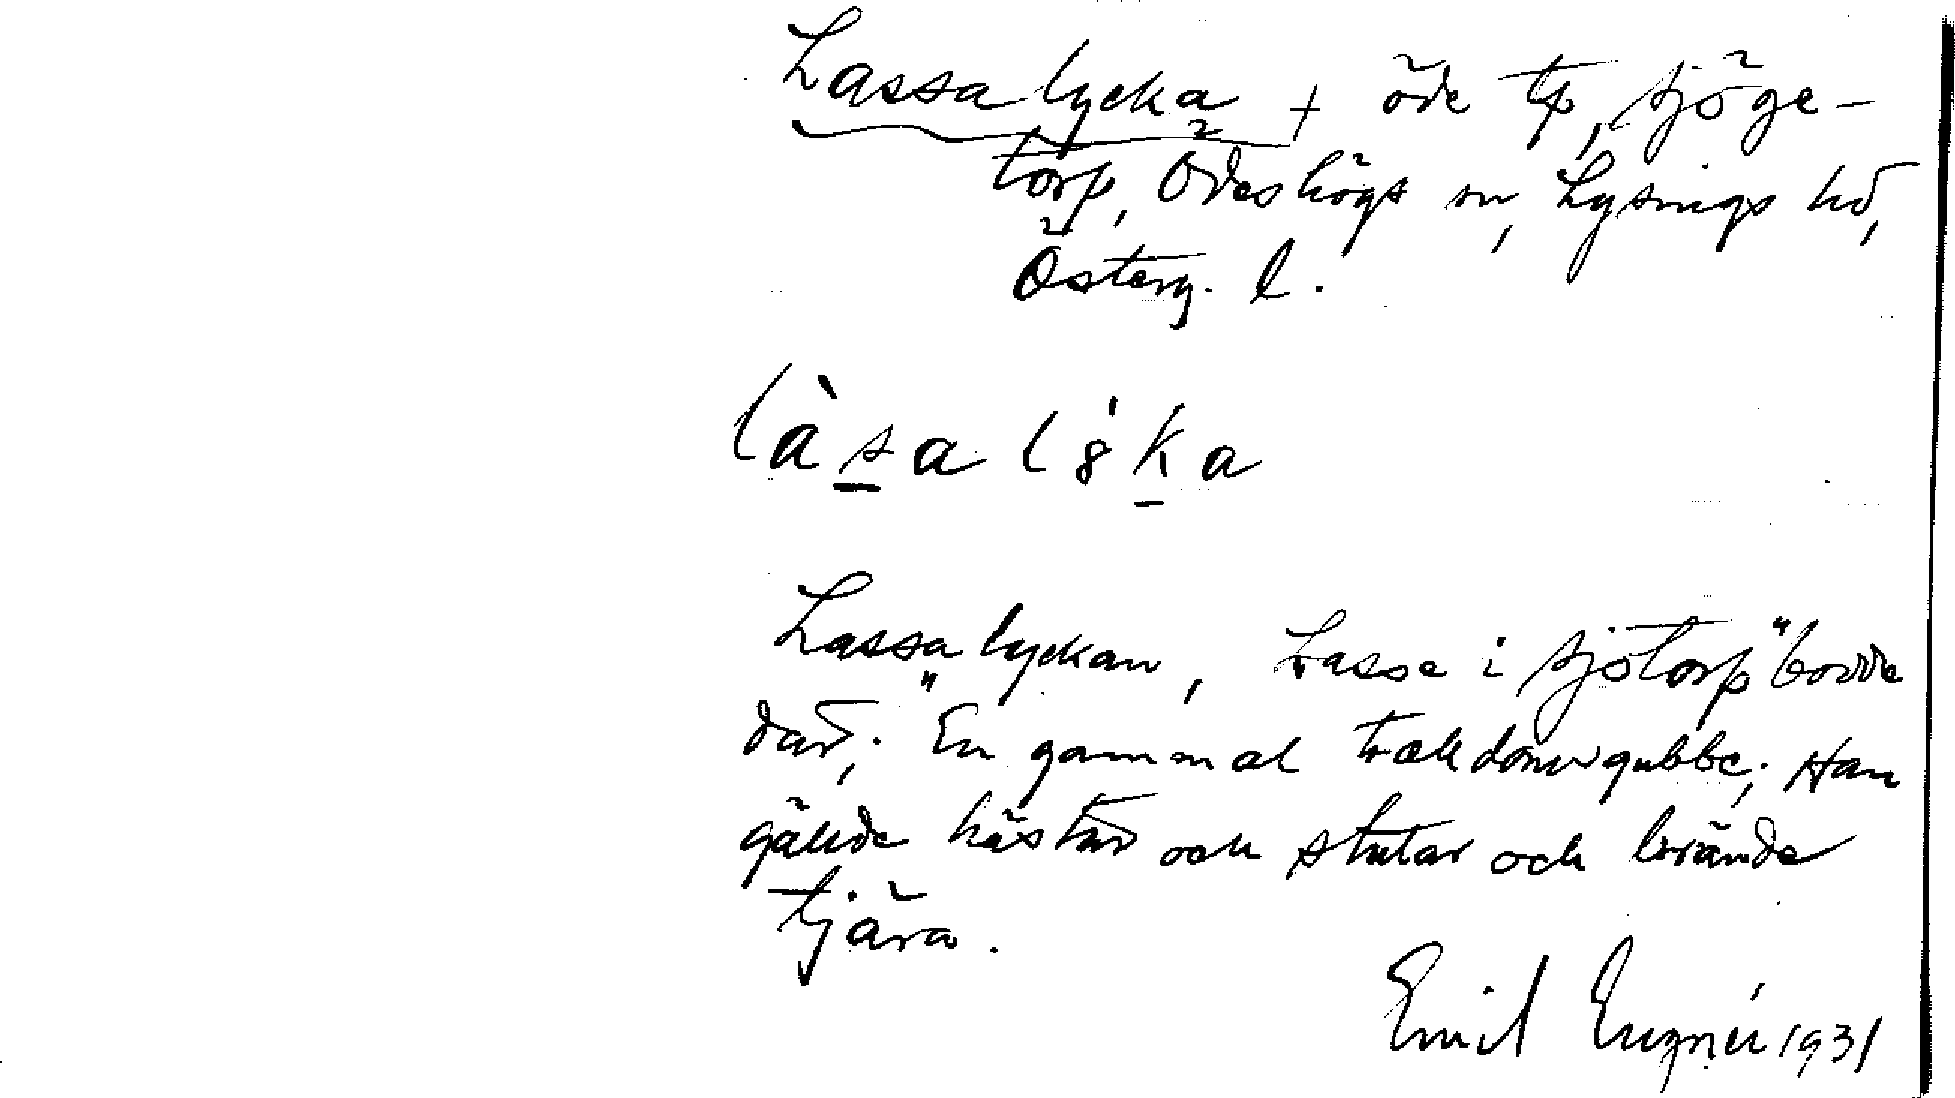 Lassalycka + öde tp, Sjöge-
torp, Ödeshögs sn, Lysings hd,
Österg. l.
làsalẏka
Lassalyckan, "Lasse i Sjötorp" bodde
där; "En gammal trolldomsgubbe; Han
gällde hästar och stutar och brände
tjära.
Emil 1931